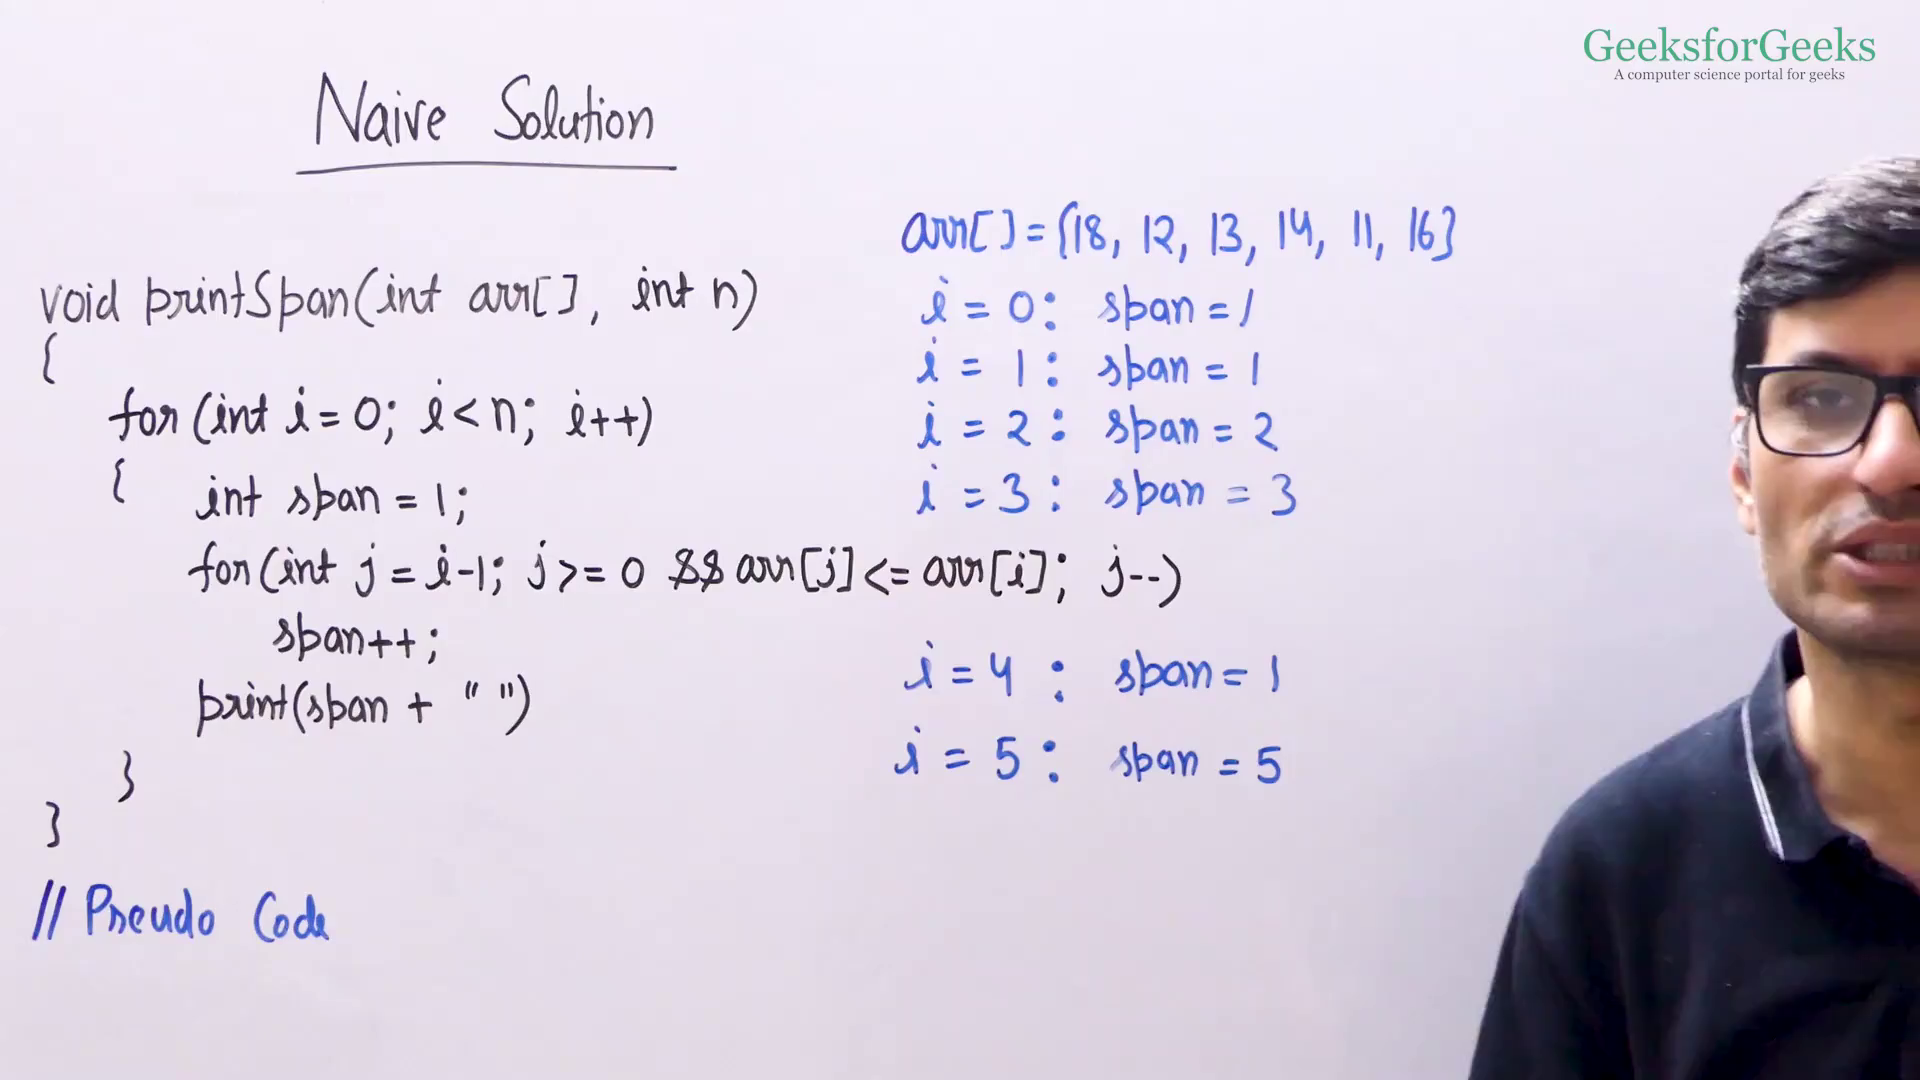 GeeksforGeeks
A computer science portal for geeks
Naive Solution
void printSpan(int arr[], int n)
{
for(int i=0; i<n; i++)
{ int span = 1;
for(int j = i-1; j>=0 && arr[j] <= arr[i]; j--)
span++;
print(span + " ")
}
}
// Pseudo Code
arr[] = {18, 12, 13, 14, 11, 16}
i = 0: span = 1
i = 1: span = 1
i = 2: span = 2
i = 3: span = 3
i = 4: span = 1
i = 5: span = 5